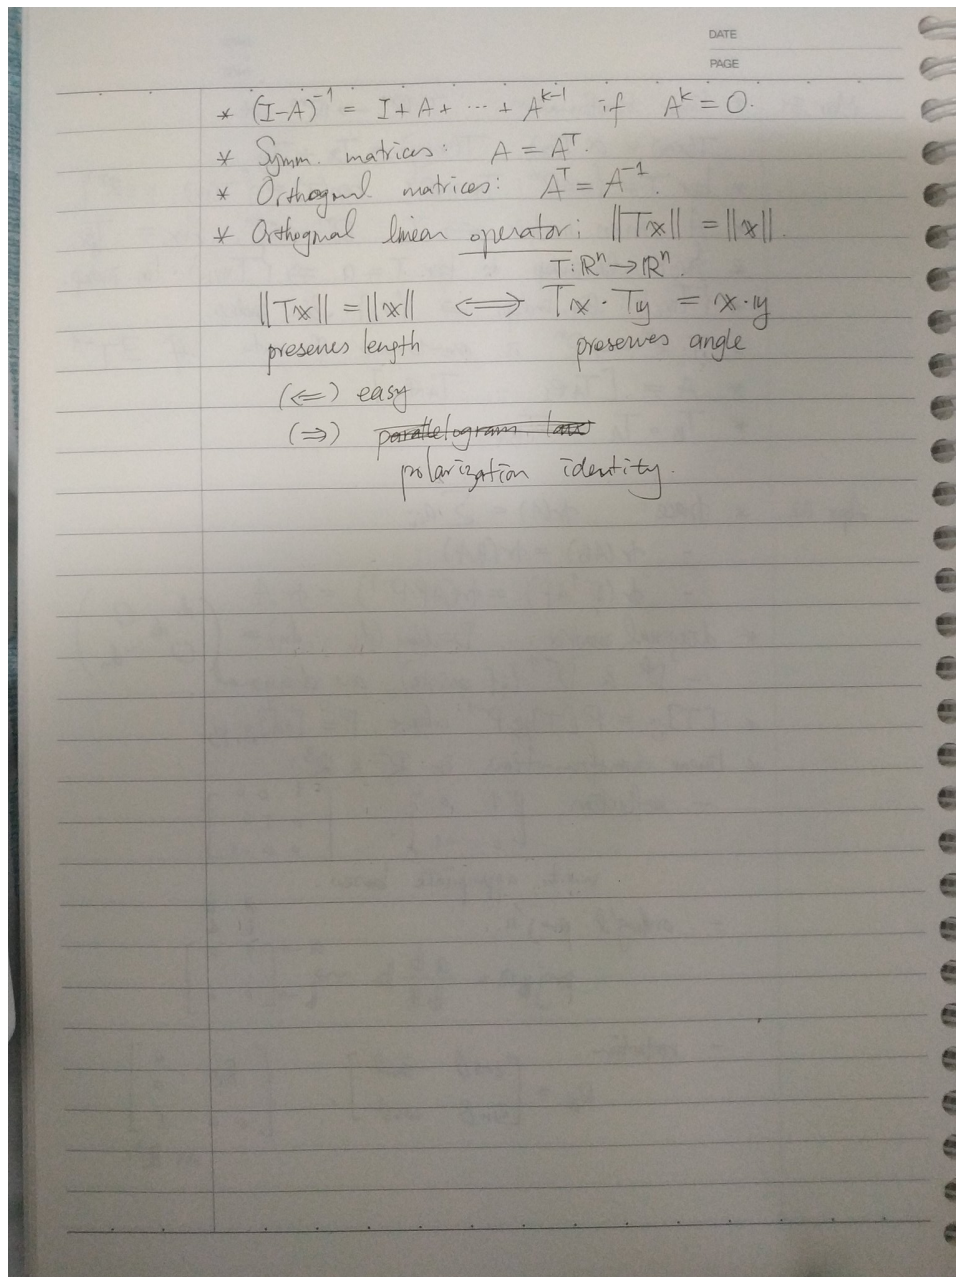 DATE
PAGE
* (I-A)⁻¹ = I + A + ⋯ + Aᵏ⁻¹ if Aᵏ = O.
* Symm. matrices: A = Aᵀ.
* Orthogonal matrices: Aᵀ = A⁻¹.
* Orthogonal linear operator: ||Tx|| = ||x||.
T: ℝⁿ → ℝⁿ.
||Tx|| = ||x|| ⟺ Tx · Ty = x · y
preserves length preserves angle
(⇐) easy
(⇒) parallelogram law
polarization identity.